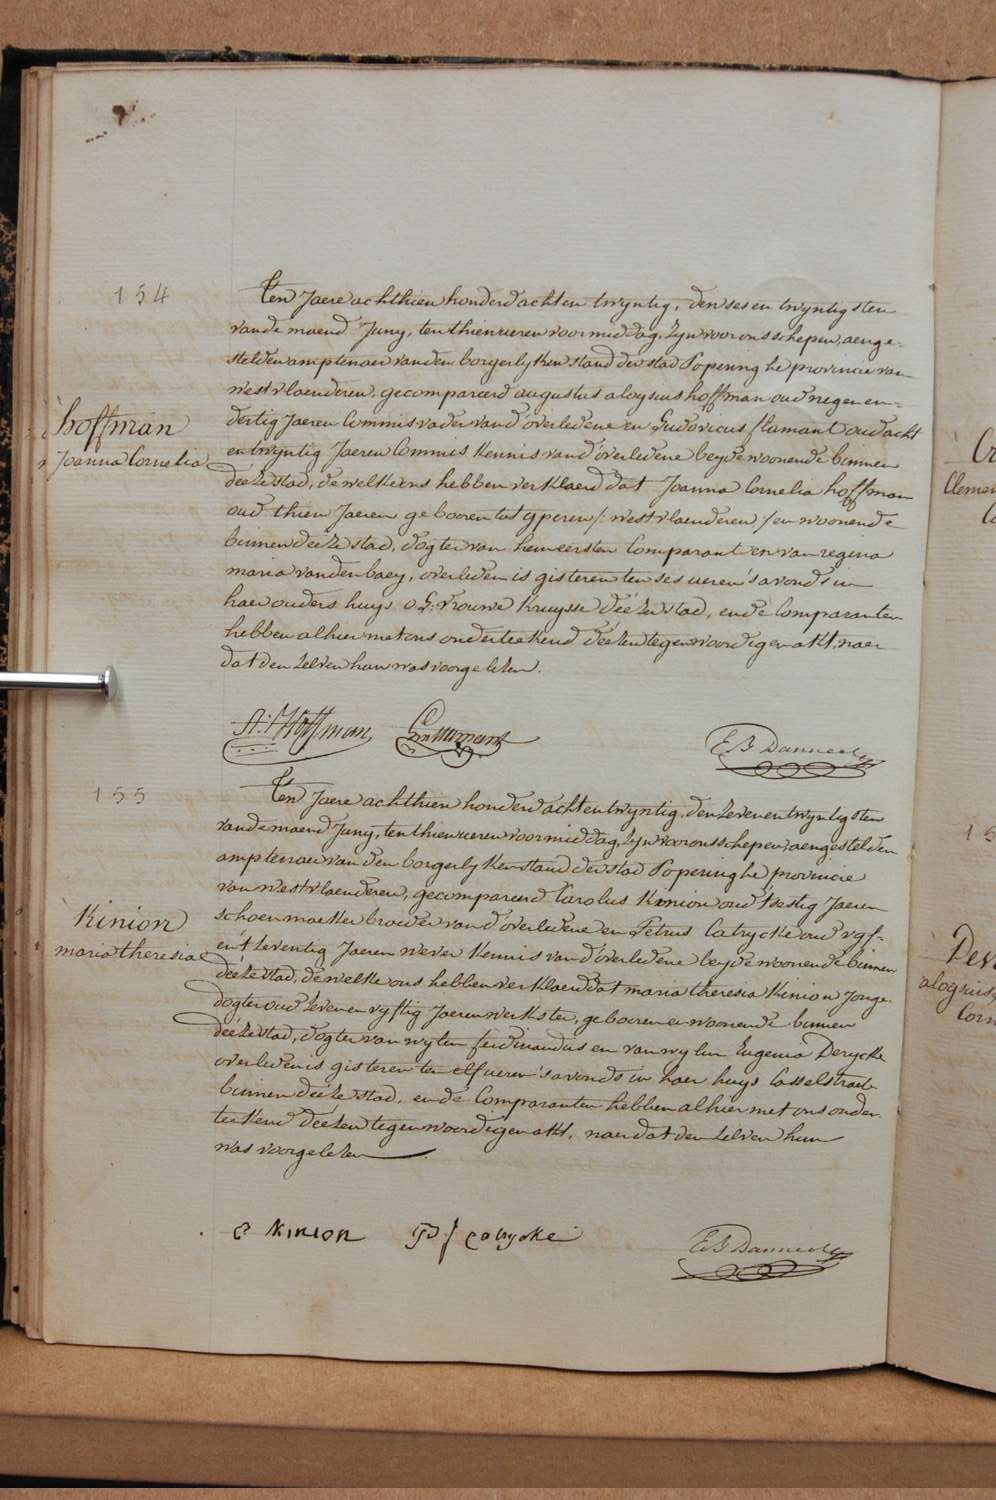 154
Ten Jaere achthien honderd acht en twyntig, den ses en twyntigsten
vande maend Juny, ten thien ueren voormiddag, zyn voor ons schepen, aenge-
stelden amptenaer van den borgerlyken stand der stad Poperinghe provincie van
westvlaenderen, gecompareerd augustus aloysius hoffman oud negen en-
dertig Jaeren Commis vader van d'overledene en Ludovicus flamant oud acht
hoffman
Joanna Cornelia
en twyntig Jaeren Commis kennis van d'overledene beyde woonende binnen
deéze stad, de welke ons hebben verklaerd dat Joanna Cornelia hoffman
oud thien Jaeren gebooren tot yperen /: westvlaenderen :/ en woonende
binnen deéze stad, dogter van hem eersten Comparant en van regina
maria vanden baey, overleden is gisteren ten ses ueren 's avonds in
haer ouders huys O. L. Vrouwe kruysse deézer stad, ende Comparanten
hebben alhier met ons onderteekend deézen tegenwoordigen akt, naer
dat den zelven hun was voorgelezen.
A: Hoffman
E B Danneel
155
Ten Jaere achthien honderd acht en twyntig, den zeven en twyntigsten
vande maend Juny, ten thien ueren voormiddag, zyn voor ons schepen, aengestelden
amptenaer van den borgerlyken stand der stad Poperinghe provincie
van westvlaenderen, gecompareerd Carolus Kinion oud t'sestig Jaeren
schoenmaeker broeder van d'overledene en Petrus Catrycke oud vyf-
Kinion
maria theresia
en t'zeventig Jaeren wever kennis van d'overledene beyde woonende binnen
deéze stad, de welke ons hebben verklaerd dat maria theresia Kinion Jonge
dogter oud zeven en vyftig Jaeren werkster, gebooren en woonende binnen
deéze stad, dogter van wylen ferdinandus en van wylen Eugenia Derycke
overleden is gisteren ten elf ueren 's avonds in haer huys Casselstraete
binnen deéze stad, ende Comparanten hebben alhier met ons onder-
teekend deézen tegenwoordigen akt, naer dat den zelven hun
was voorgelezen.
C Kinion P J Catrycke
E B Danneel